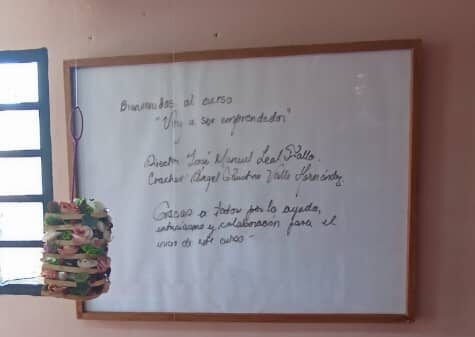 Bienvenidos al curso
"Voy a ser emprendedor"
Director José Manuel Leal
Coacher Angel Valle Hernández
Gracias a todos por la ayuda,
entusiasmo y colaboración para el
inicio de este curso -